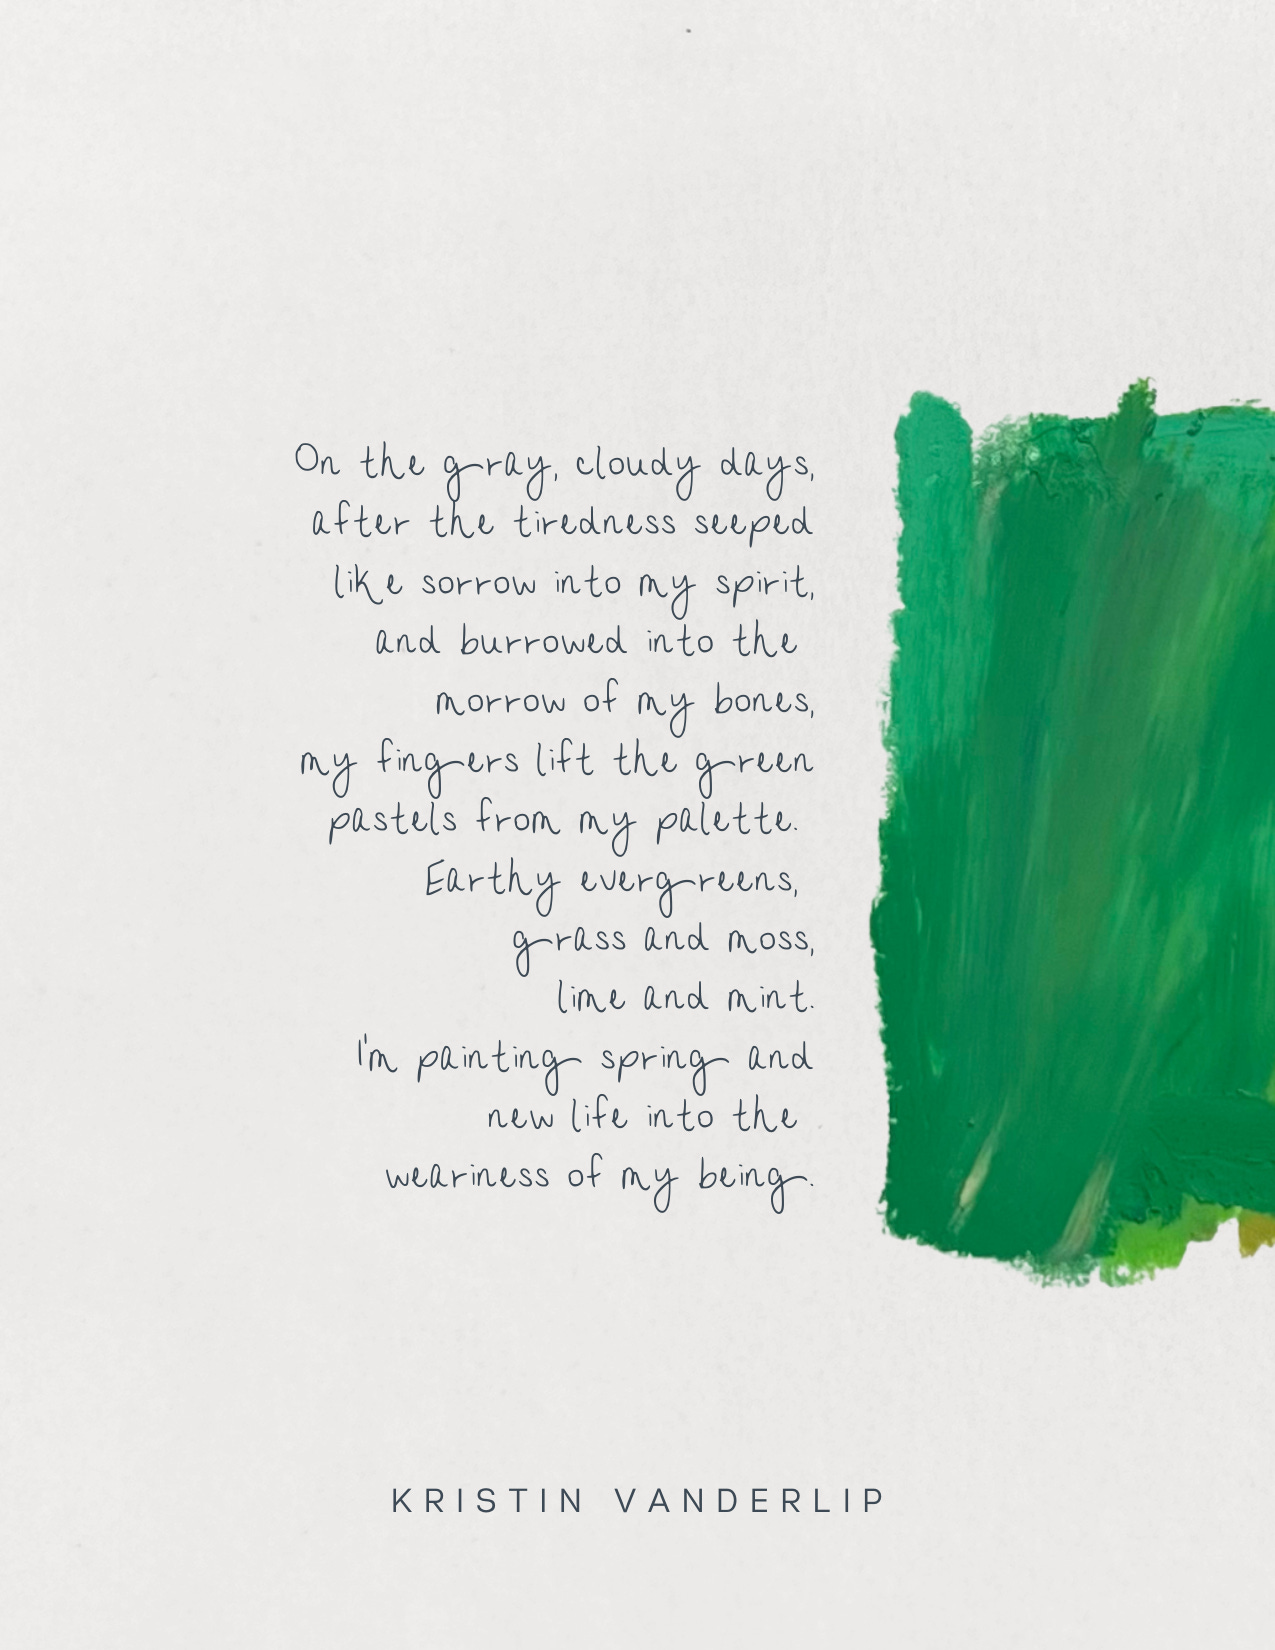 On the gray, cloudy days,
after the tiredness seeped
like sorrow into my spirit,
and burrowed into the
morrow of my bones,
my fingers lift the green
pastels from my palette.
Earthy evergreens,
grass and moss,
lime and mint.
I'm painting spring and
new life into the
weariness of my being.
KRISTIN VANDERLIP